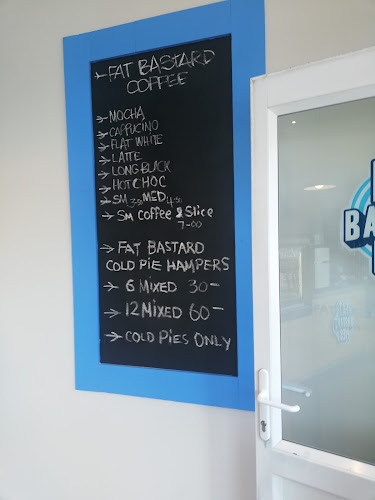 → FAT BASTARD
COFFEE
→ MOCHA
→ CAPPUCINO
→ FLAT WHITE
→ LATTE
→ LONG BLACK
→ HOT CHOC
→ SM 3.50 MED 4.50
→ SM COFFEE & SLICE
7-00
→ FAT BASTARD
COLD PIE HAMPERS
→ 6 MIXED 30-
→ 12 MIXED 60-
→ COLD PIES ONLY
BA